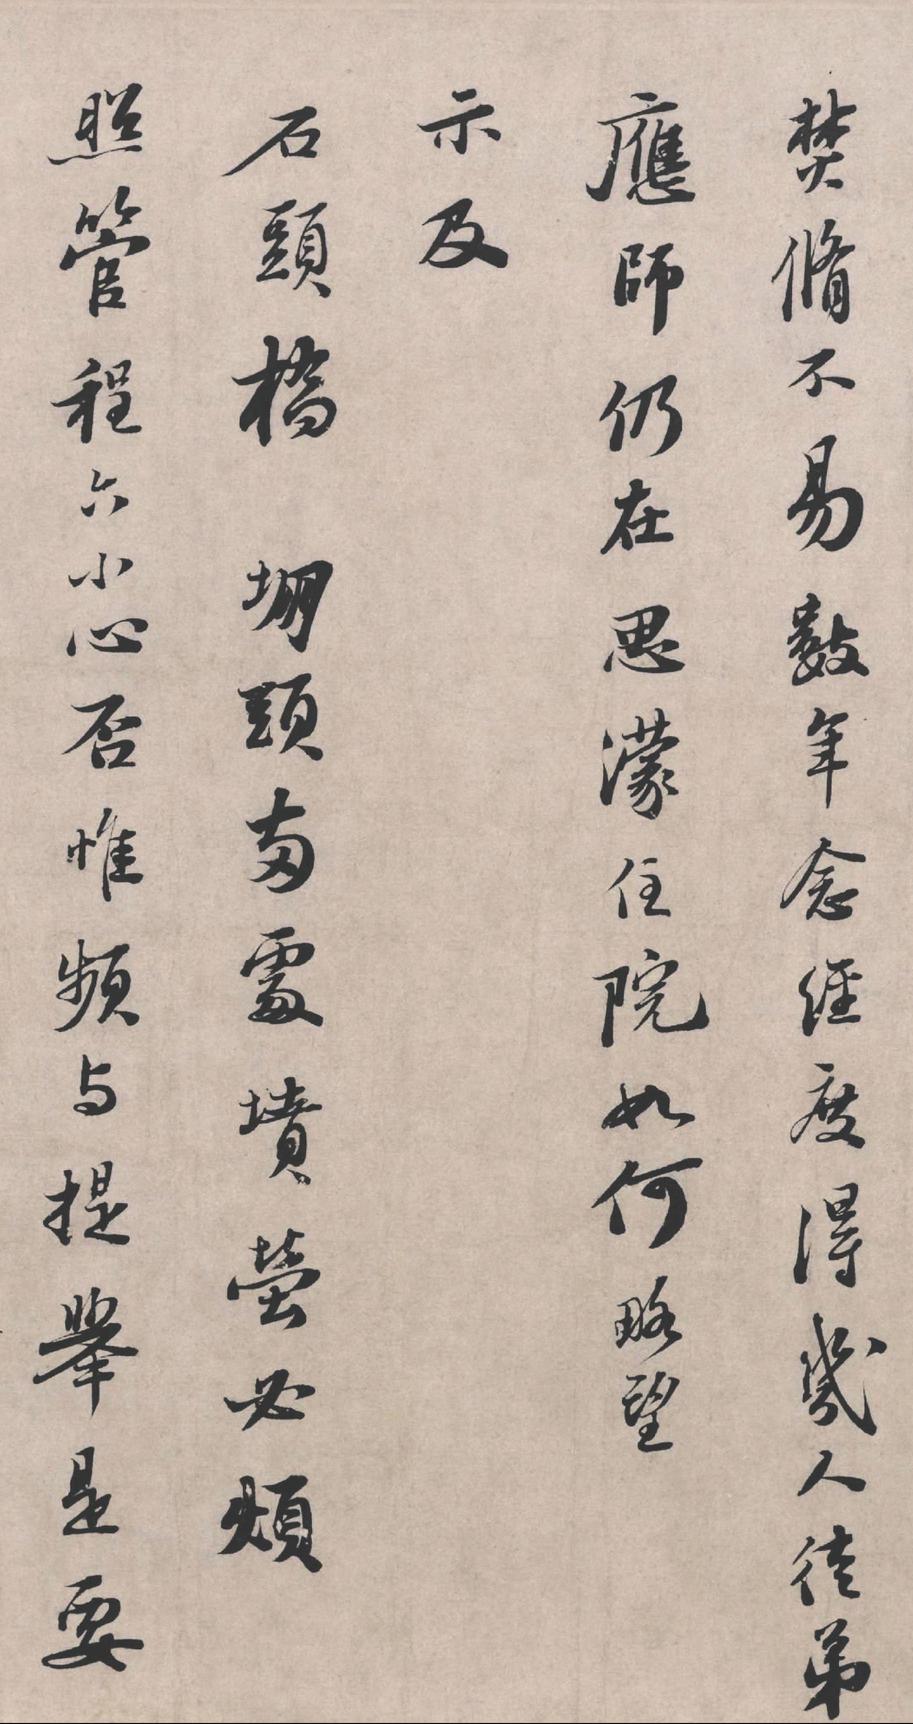 焚脩不易數年念經度得幾人徒弟
應師仍在思濛住院如何略望
示及
石頭橋 堋頭兩處墳塋必煩
照管程六小心否惟頻与提舉是要